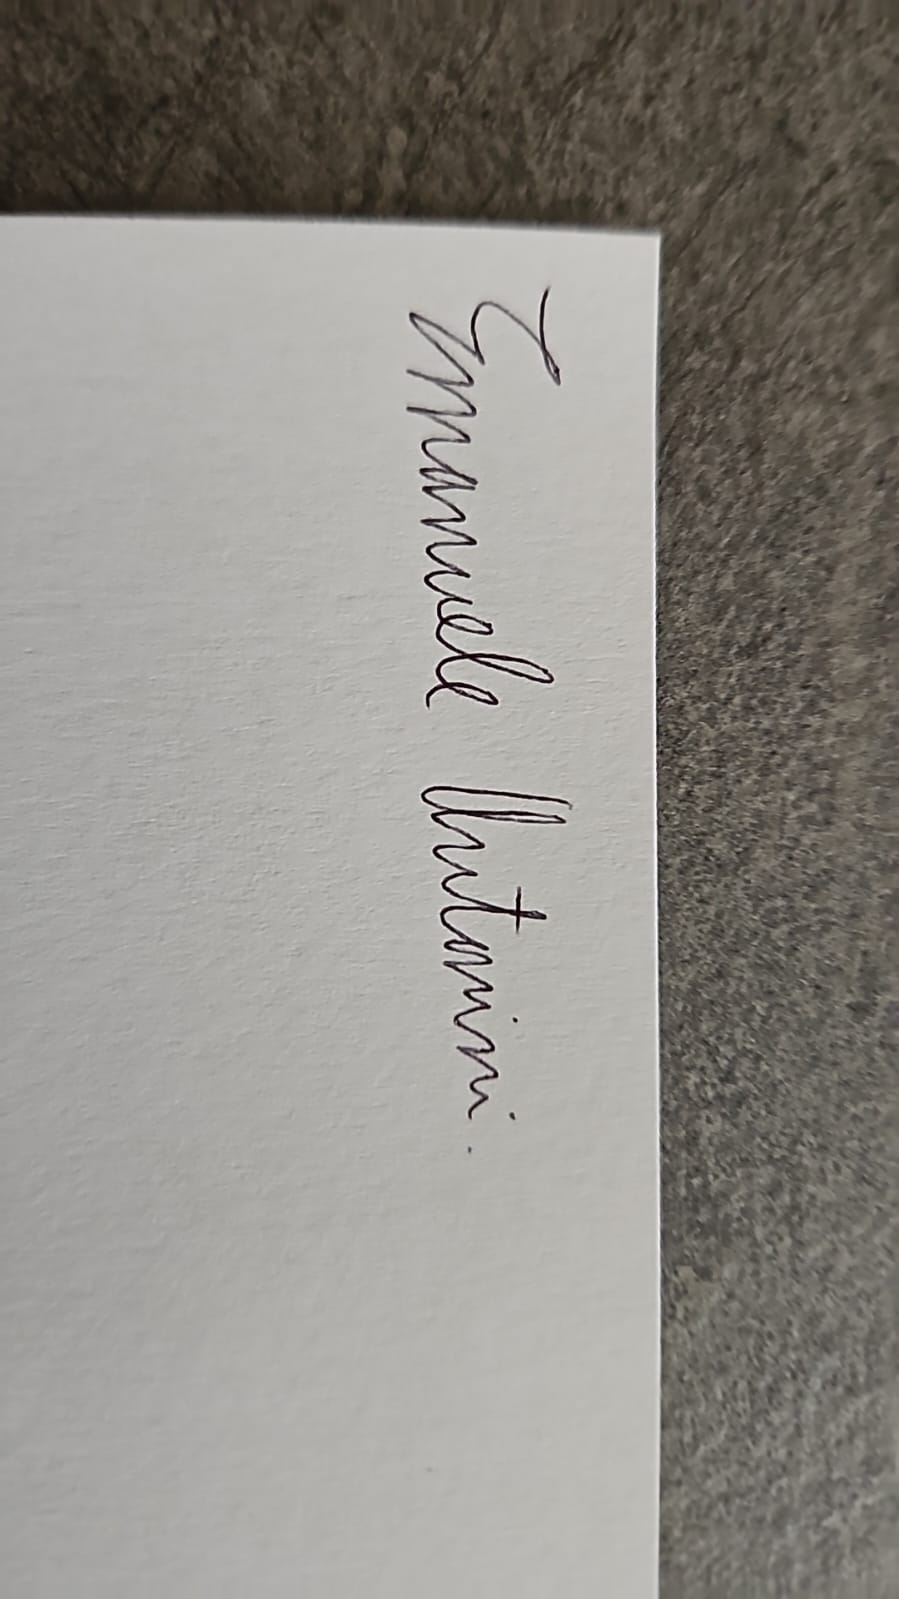 Emanuele Antonini.